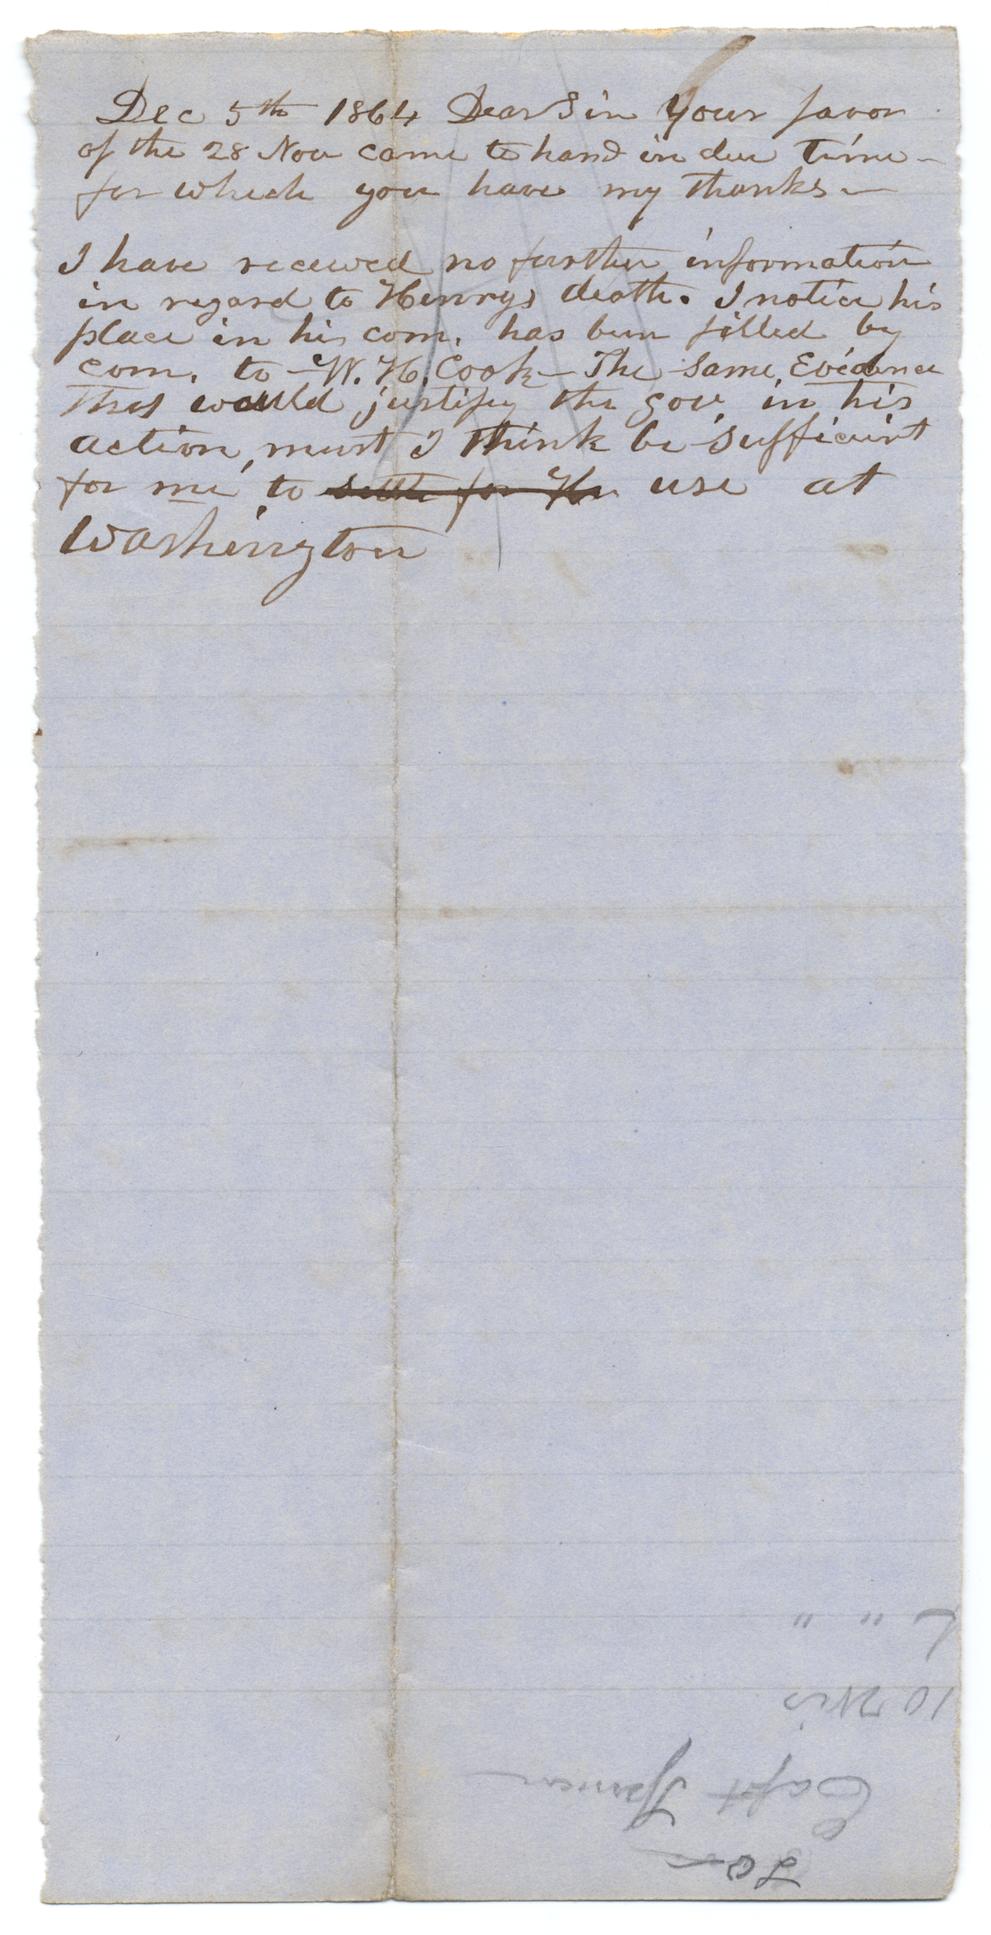 Dec 5th 1864 Dear Sir Your favor
of the 28 Nov came to hand in due time –
for which you have my thanks –
I have received no further information
in regard to Henrys death. I notice his
place in his com. has been filled by
com. to – W. H. Cook – The same Evidence
that would justify the gov. in his
action, must I think be sufficient
for me to settle for He use at
Washington
L " "
10 Wis
Capt